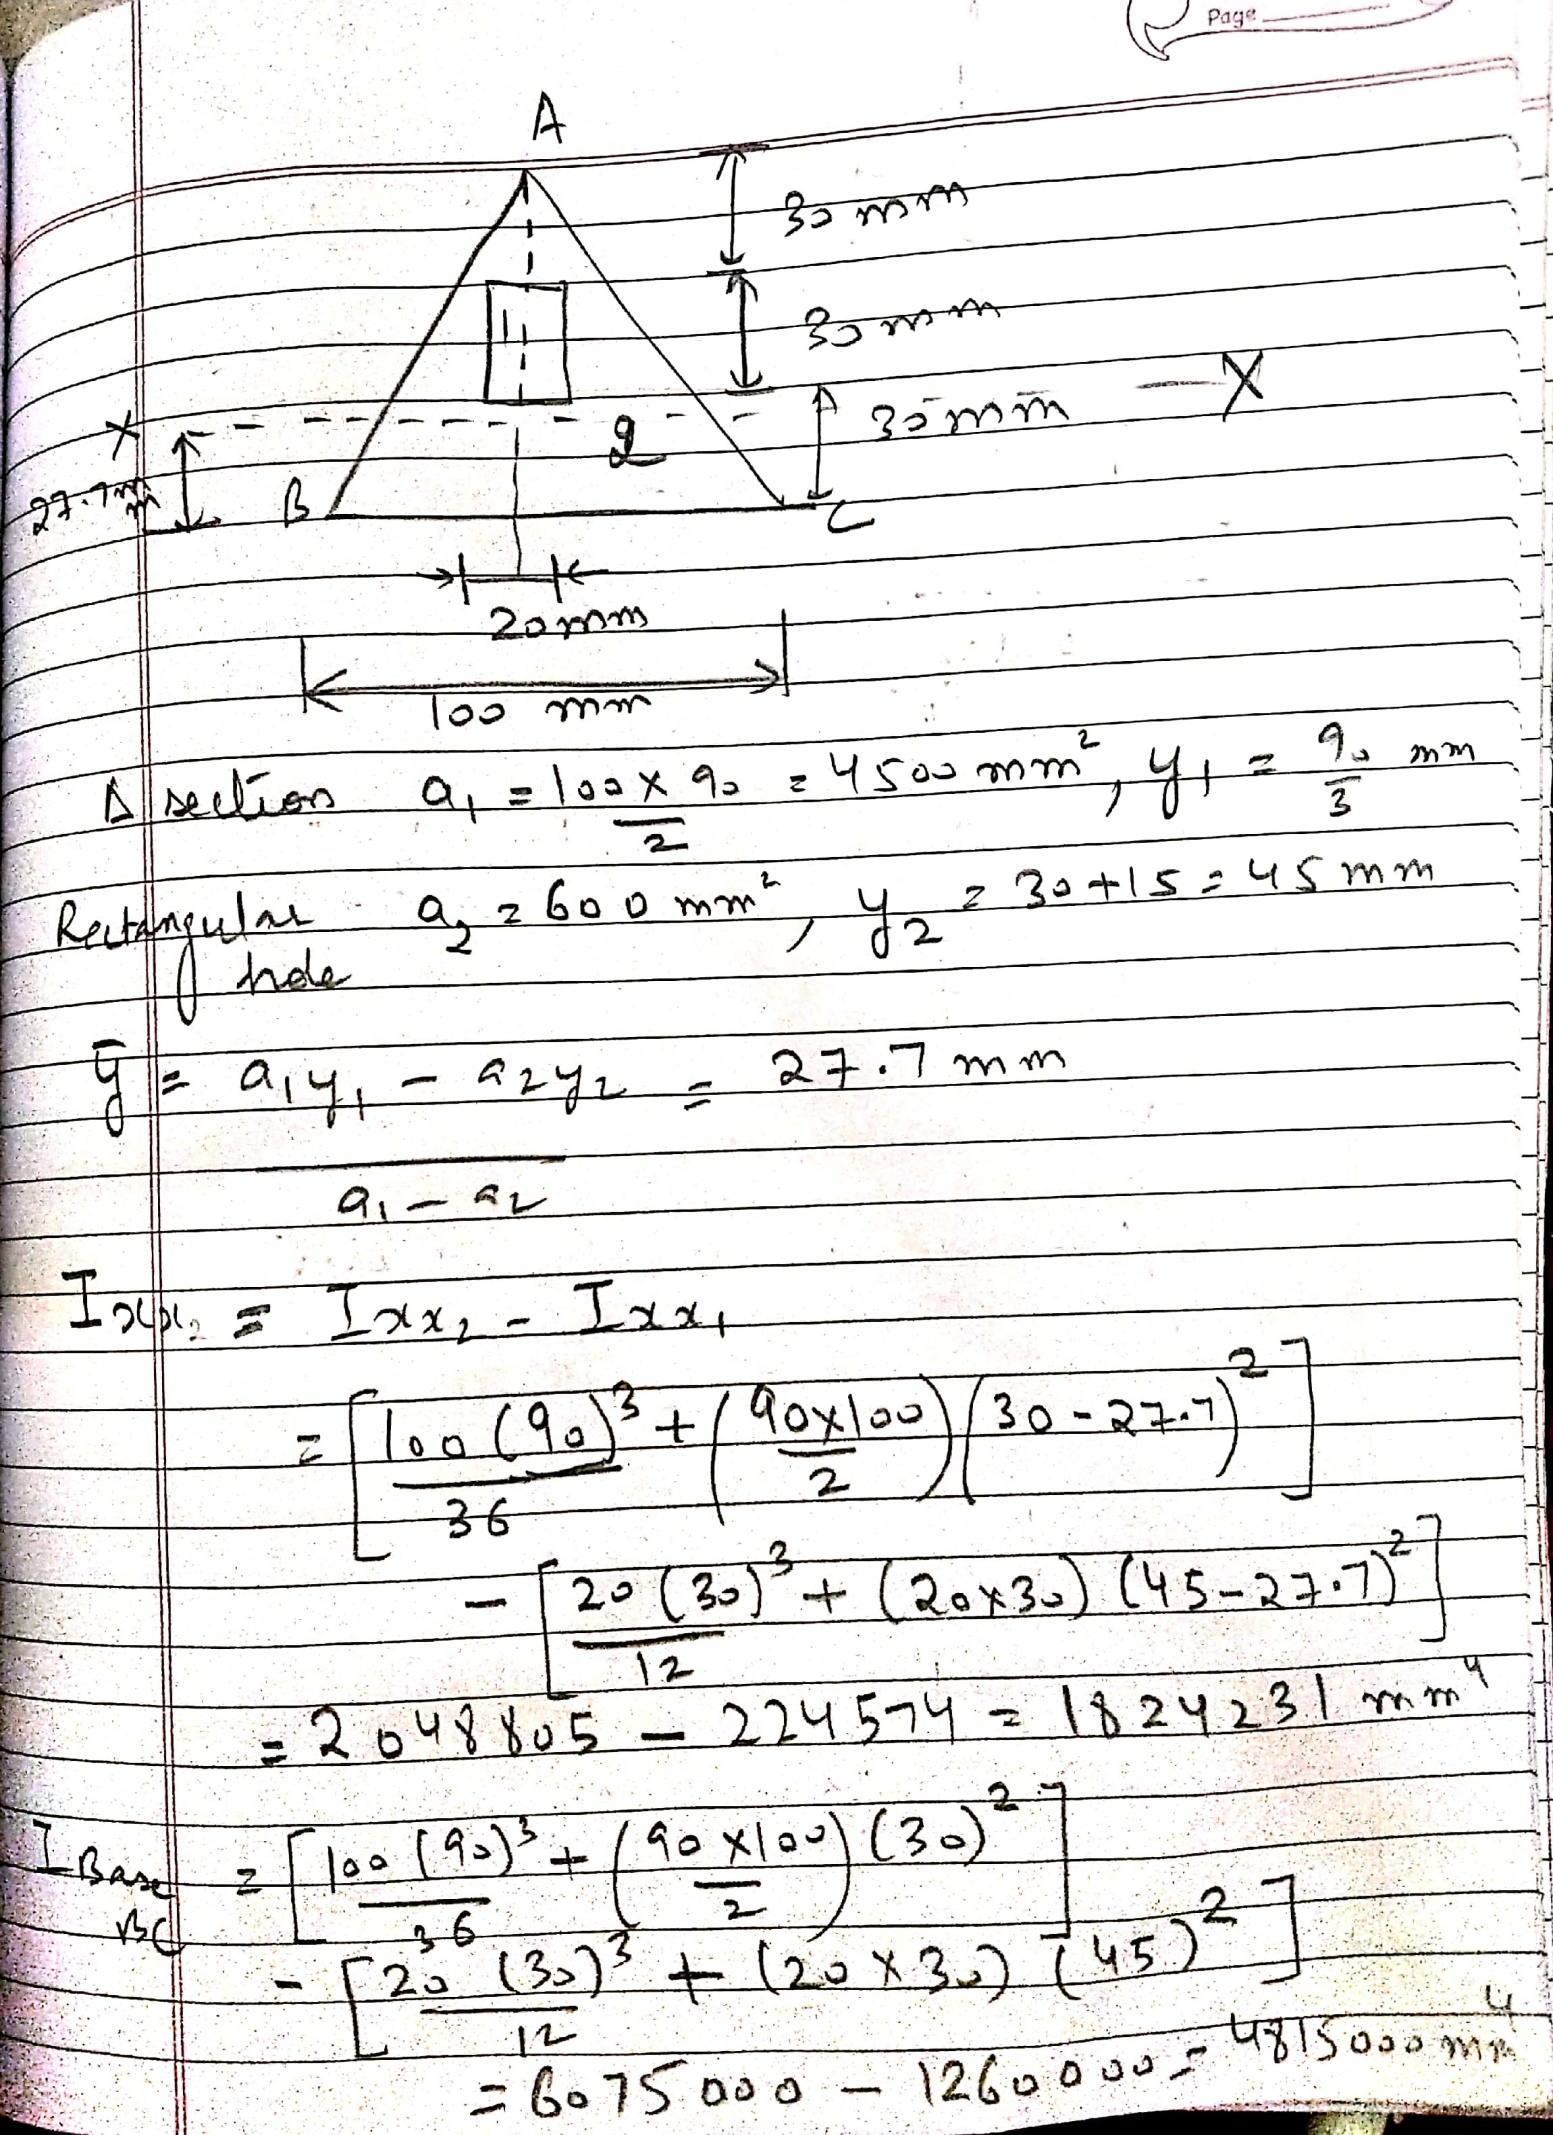 Page
A
30 mm
30 mm
X
30 mm
X
2
1
27.7 mm
B
C
20 mm
100 mm
Δ section a₁ = 100 × 90 / 2 = 4500 mm², y₁ = 90/3 mm
Rectangular hole a₂ = 600 mm², y₂ = 30 + 15 = 45 mm
ȳ = a₁y₁ - a₂y₂ / a₁ - a₂ = 27.7 mm
Ixx₂ = Ixx₂ - Ixx₁
= [100 (90)³ / 36 + (90×100 / 2) (30 - 27.7)²]
- [20 (30)³ / 12 + (20×30) (45 - 27.7)²]
= 2048805 - 224574 = 1824231 mm⁴
I Base BC = [100 (90)³ / 36 + (90 × 100 / 2) (30)²]
- [20 (30)³ / 12 + (20 × 30) (45)²]
= 6075000 - 1260000 = 4815000 mm⁴